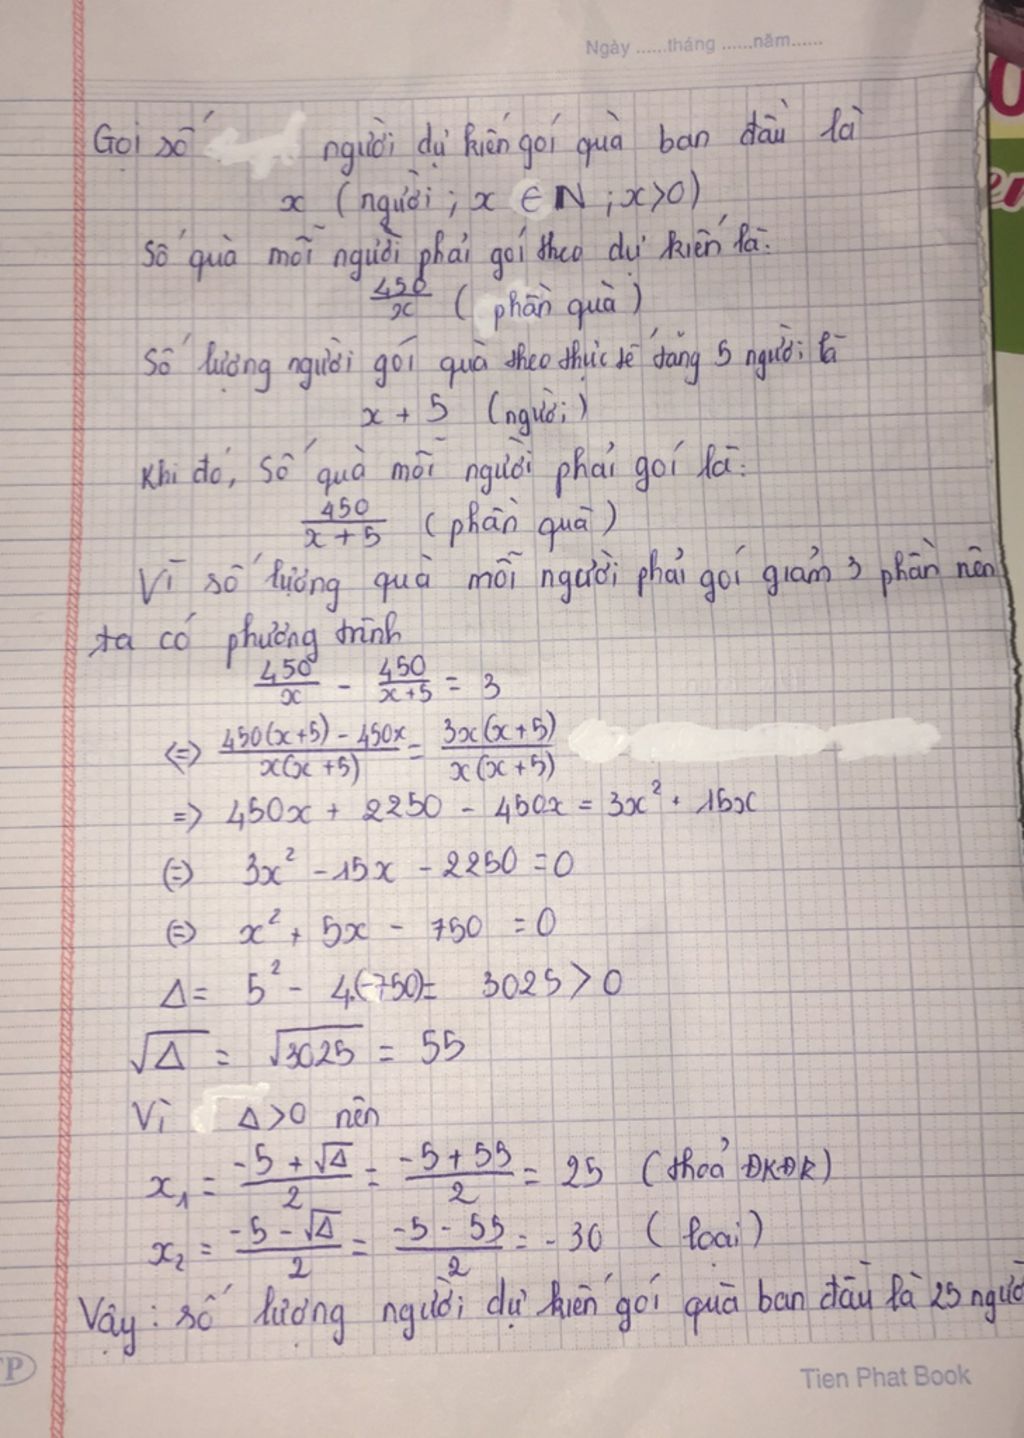 Ngày ......tháng ......năm......
Gọi số người dự kiến gói quà ban đầu là
x (người ; x ∈ N ; x>0)
Số quà mỗi người phải gói theo dự kiến là:
450/x ( phần quà )
Số lượng người gói quà theo thực tế tăng 5 người là
x + 5 (người)
Khi đó, số quà mỗi người phải gói là:
450/(x + 5) ( phần quà )
Vì số lượng quà mỗi người phải gói giảm 3 phần nên
ta có phương trình
450/x - 450/(x+5) = 3
<=> (450(x+5) - 450x)/(x(x+5)) = (3x(x+5))/(x(x+5))
=> 450x + 2250 - 450x = 3x² + 15x
(=) 3x² - 15x - 2250 = 0
(=) x² + 5x - 750 = 0
Δ = 5² - 4.(-750)= 3025 > 0
√Δ = √3025 = 55
Vì Δ>0 nên
x₁ = (-5 + √Δ)/2 = (-5 + 55)/2 = 25 ( thoả ĐKĐK)
x₂ = (-5 - √Δ)/2 = (-5 - 55)/2 = - 30 ( loại )
Vậy : số lượng người dự kiến gói quà ban đầu là 25 ngườ
TP
Tien Phat Book